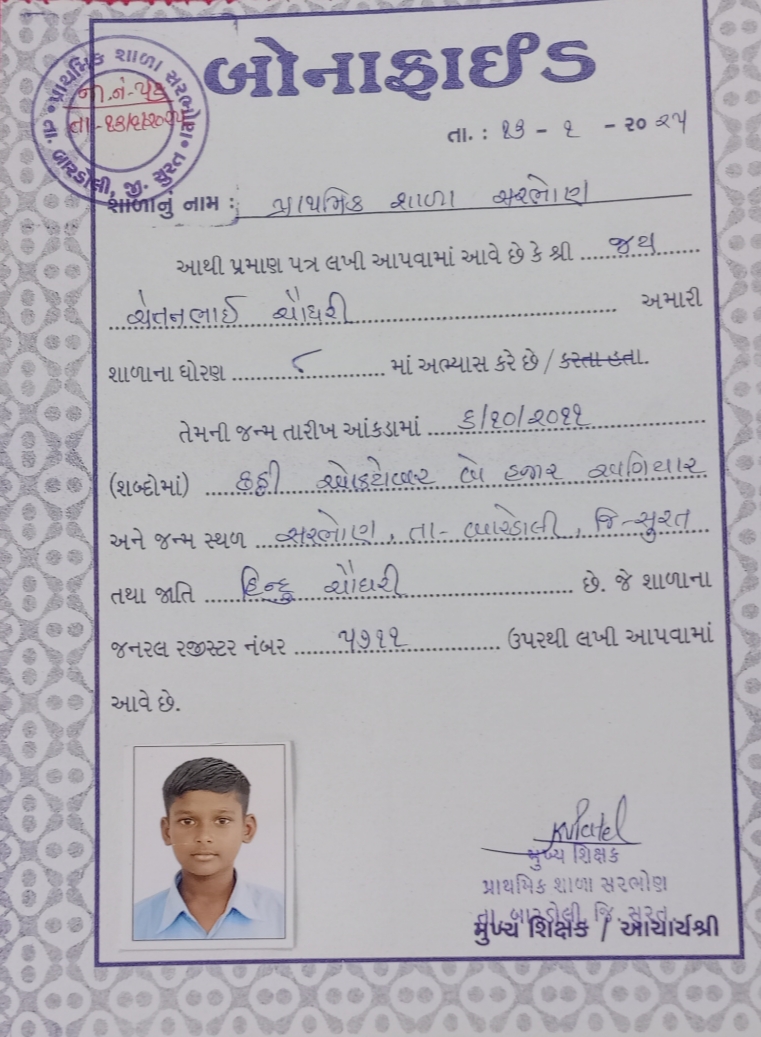 બોનાફાઈડ
પ્રાથમિક શાળા સરભોણ તા. બારડોલી, જી. સુરત
જા.નં-૫૬
તા-૧૩/૧/૨૦૨૫
તા. : ૧૩ - ૧ - ૨૦ ૨૫
શાળાનું નામ : પ્રાથમિક શાળા સરભોણ
આથી પ્રમાણ પત્ર લખી આપવામાં આવે છે કે શ્રી જય
ચેતનભાઈ ચૌધરી અમારી
શાળાના ધોરણ ૮ માં અભ્યાસ કરે છે / કરતા હતા.
તેમની જન્મ તારીખ આંકડામાં ૬/૧૦/૨૦૧૧
(શબ્દોમાં) છઠ્ઠી ઓક્ટોબર બે હજાર અગિયાર
અને જન્મ સ્થળ સરભોણ, તા- બારડોલી, જિ-સુરત
તથા જાતિ હિન્દુ ચૌધરી છે. જે શાળાના
જનરલ રજીસ્ટર નંબર ૫૭૧૧ ઉપરથી લખી આપવામાં
આવે છે.
મુખ્ય શિક્ષક
પ્રાથમિક શાળા સરભોણ
તા. બારડોલી, જિ. સુરત.
મુખ્ય શિક્ષક / આચાર્યશ્રી